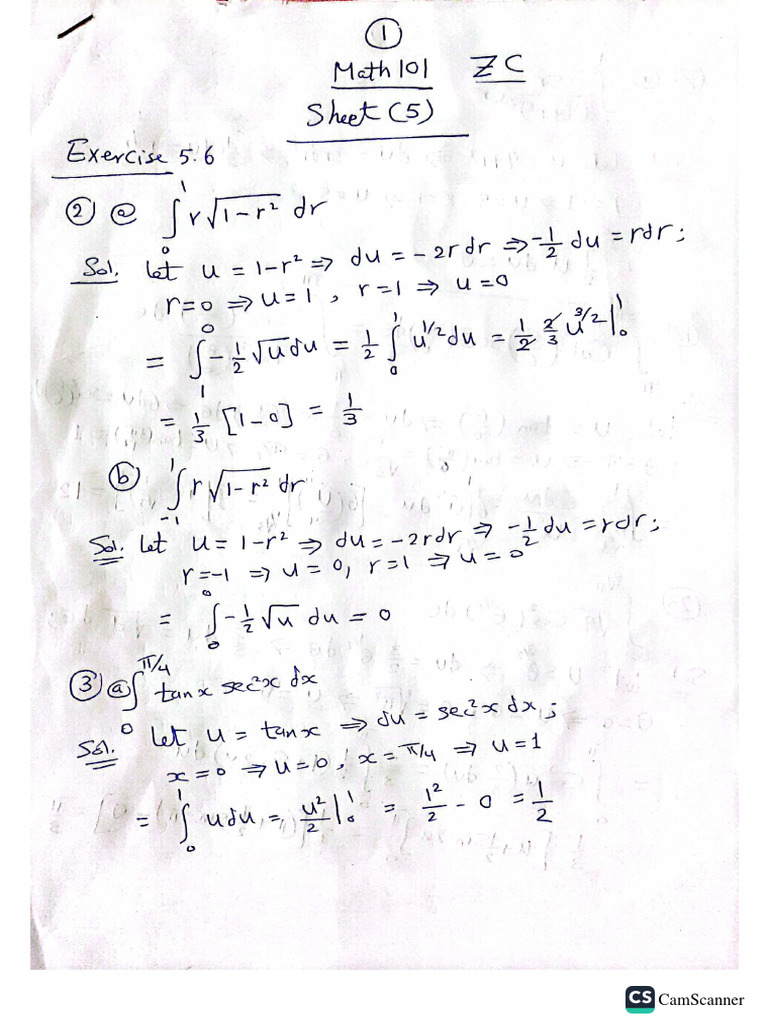 ①
Math 101 ZC
Sheet (5)
Exercise 5.6
② ⓐ ∫₀¹ r√(1-r²) dr
Sol. let u = 1-r² ⇒ du = -2r dr ⇒ -1/2 du = r dr ;
r=0 ⇒ u=1 , r=1 ⇒ u=0
= ∫₁⁰ -1/2 √u du = 1/2 ∫₀¹ u^(1/2) du = 1/2 2/3 u^(3/2) |₀¹
= 1/3 [1-0] = 1/3
ⓑ ∫₋₁¹ r√(1-r²) dr
Sol. let u = 1-r² ⇒ du = -2rdr ⇒ -1/2 du = rdr ;
r=-1 ⇒ u=0, r=1 ⇒ u=0
= ∫₀⁰ -1/2 √u du = 0
③ ⓐ ∫₀^(π/4) tanx sec²x dx
Sol. let u = tanx ⇒ du = sec²x dx ;
x=0 ⇒ u=0, x=π/4 ⇒ u=1
= ∫₀¹ u du = u²/2 |₀¹ = 1²/2 - 0 = 1/2
CS CamScanner